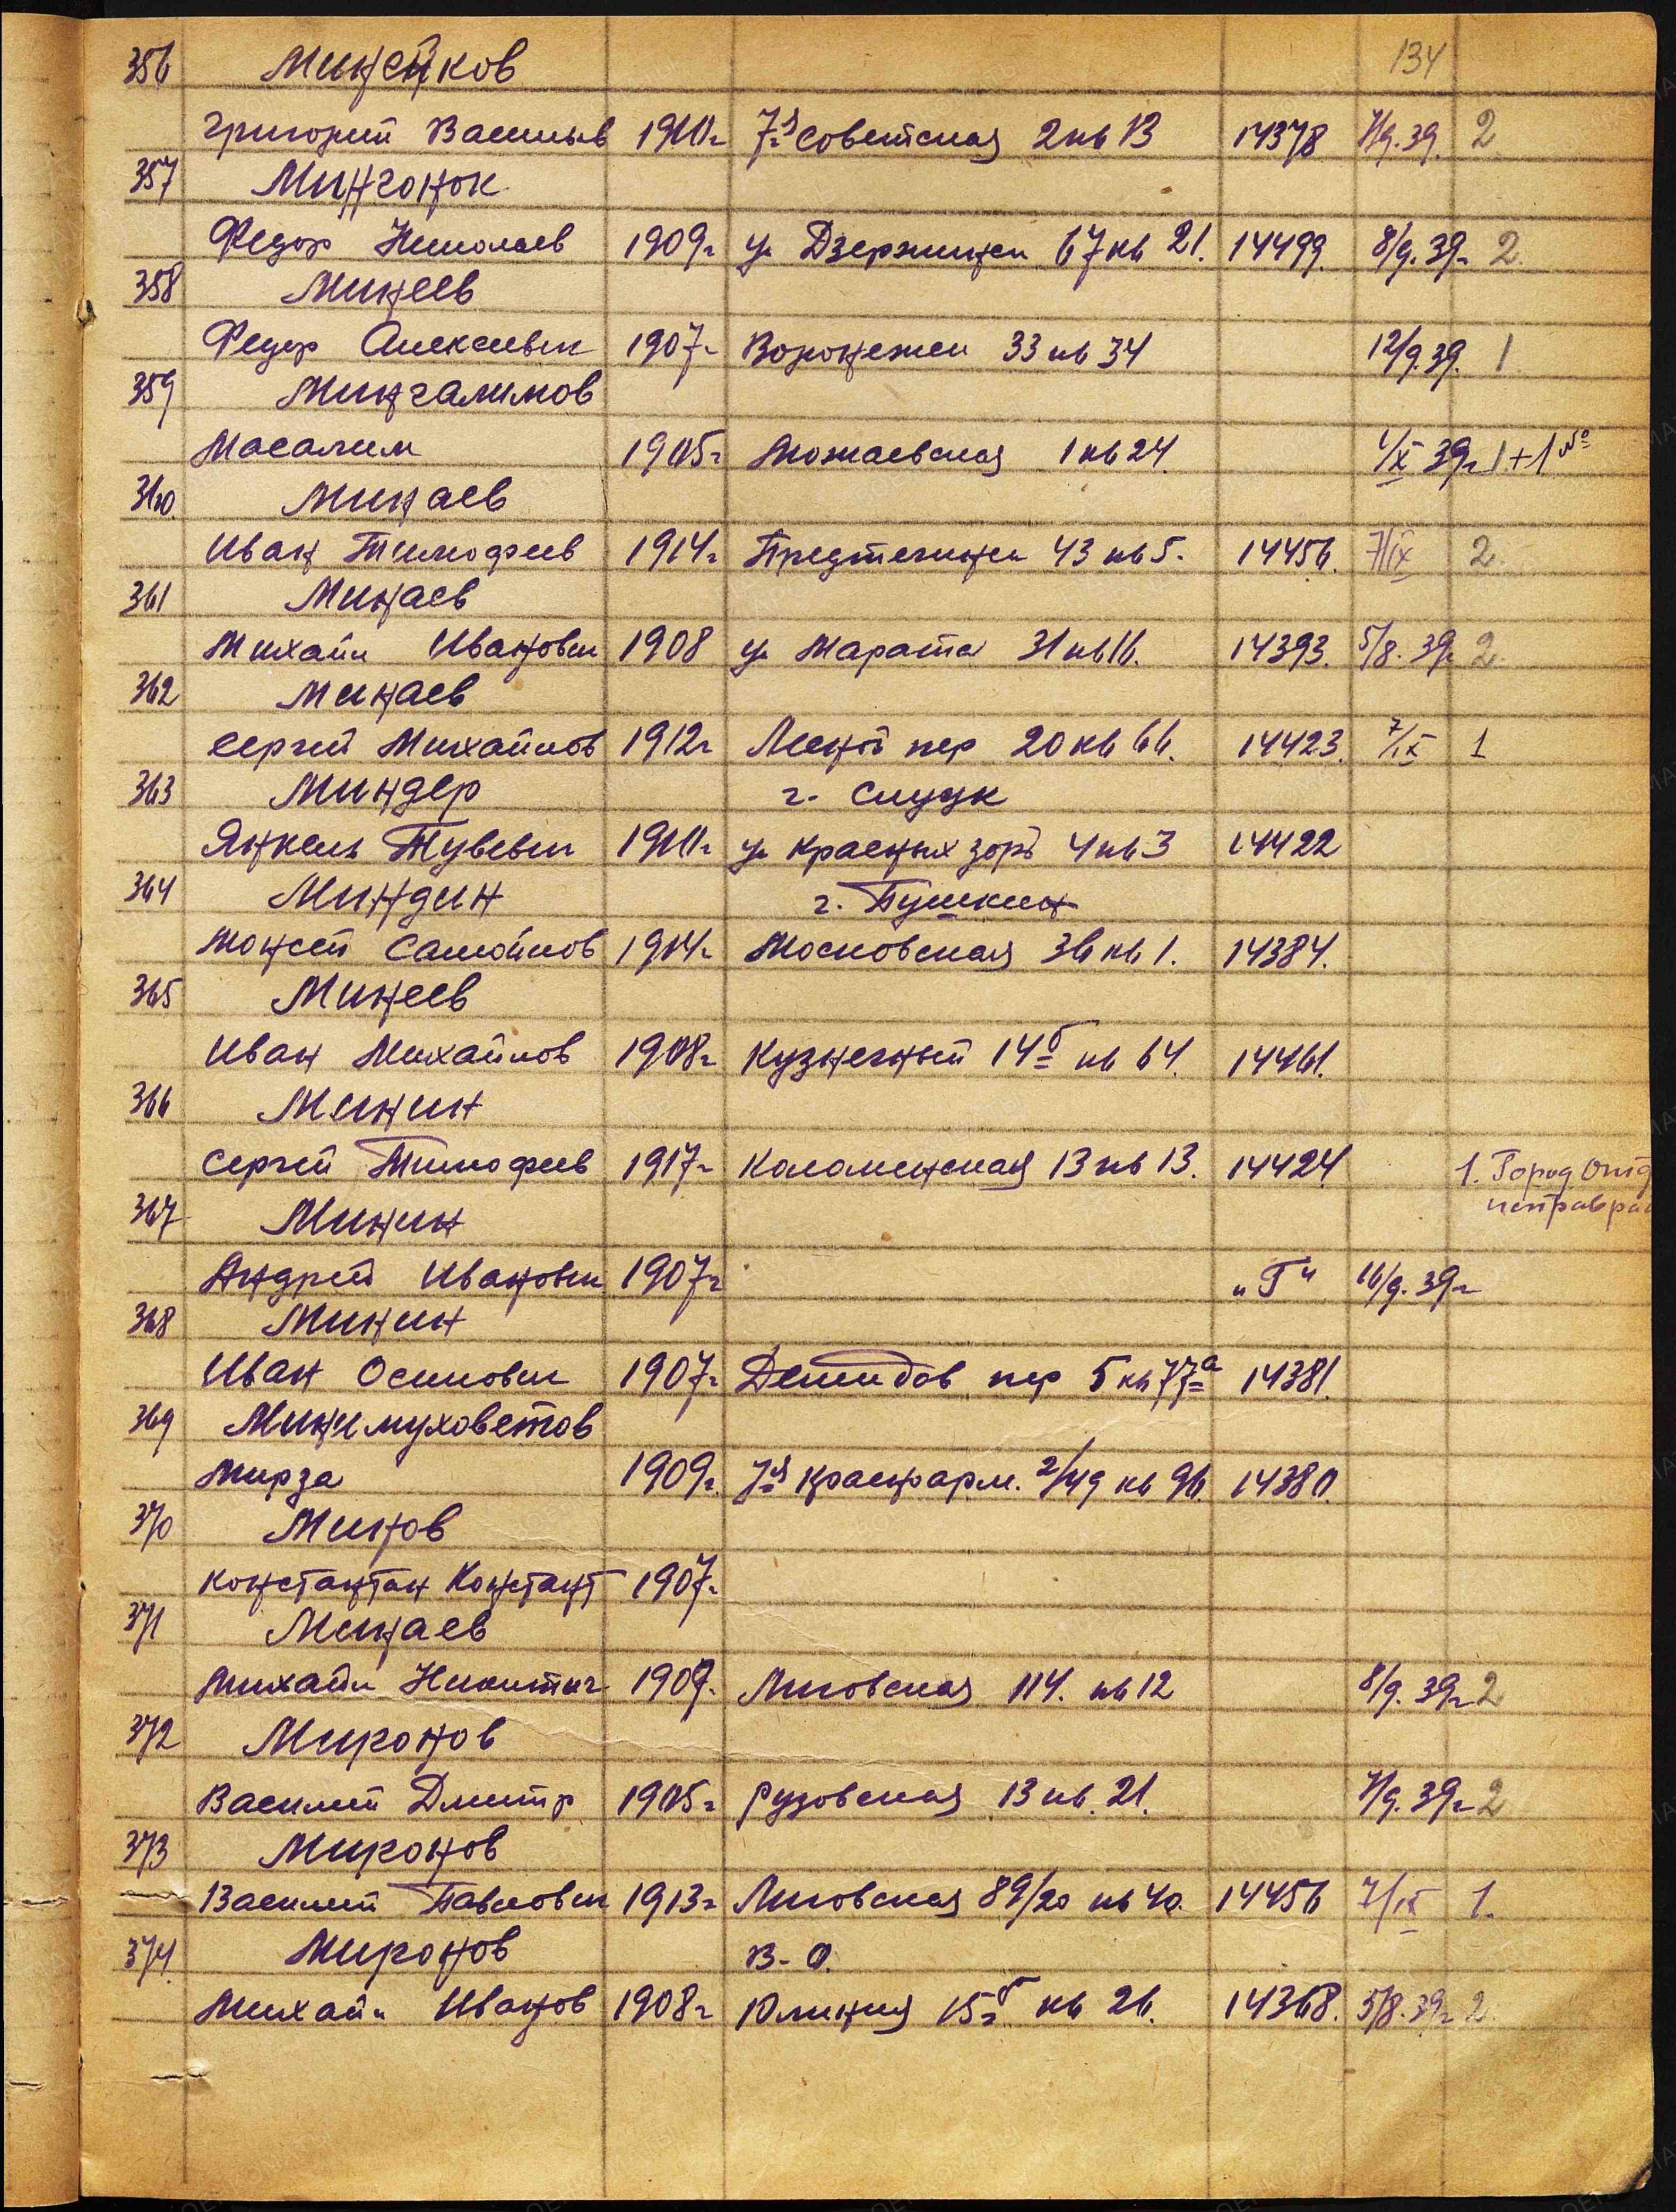 134
356 Минейков
Григорий Васильев 1910г 7я Советская 2 кв 13 14378 7/9.39. 2
357 Мингонок
Федор Николаев 1909г ул Дзержинск 67 кв 21. 14499. 8/9.39г 2.
358 Минеев
Федор Алексеевич 1907г Воронежск 33 кв 34 12/9.39. 1
359 Мингалимов
Масалим 1905г Можаевская 1 кв 24. 1/IX 39г 1+1
360. Минаев
Иван Тимофеев 1914г Предтеченск 43 кв 5. 14456. 7/IX 2.
361 Минаев
Михаил Иванович 1908 ул Марата 31 кв 16. 14393. 5/8.39г 2.
362 Минаев
Сергей Михайлов 1912г Лесной пер 20 кв 66. 14423. 7/IX 1
363 Миндер г. Слуцк
Янкель Тувевич 1910г ул Красных зорь 4 кв 3 14422
364 Миндин г. Пушкин
Моисей Самойлов 1904г Московская 36 кв 1. 14384.
365 Минеев
Иван Михайлов 1908г Кузнечный 14б кв 64. 14461.
366 Минин
Сергей Тимофеев 1917г Коломенская 13 кв 13. 14424 1. Город Отд
367 Минин
Андрей Иванович 1907г "Г" 16/9.39г
368 Минин
Иван Осипович 1907г Демидов пер 5 кв 77а 14381.
369 Минимуховетов
Мирза 1909г. 7я Краснарм. 2/49 кв 96. 14380.
370 Минов
Константан Констант 1907г
371 Минаев
Михаил Никитич 1909. Лиговская 114. кв 12 8/9.39г 2
372 Миронов
Василий Дмитр 1905г Рузовская 13 кв. 21. 7/9.39г 2
373 Миронов
Василий Павлович 1913г Лиговская 89/20 кв 40. 14456 7/IX 1.
374. Миронов В-О.
Михаил Иванов 1908г 10 линия 15б кв 26. 14368. 5/8.39г 2.